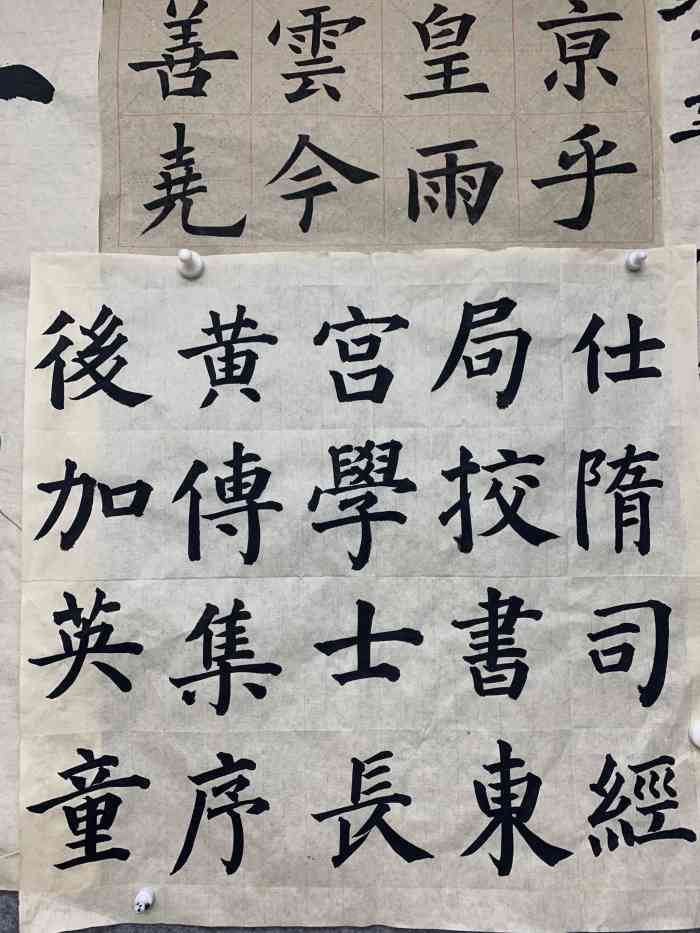 亰乎
皇雨
雲今
善堯
仕隋司經
局挍書東
宮學士長
黄傳集序
後加英童